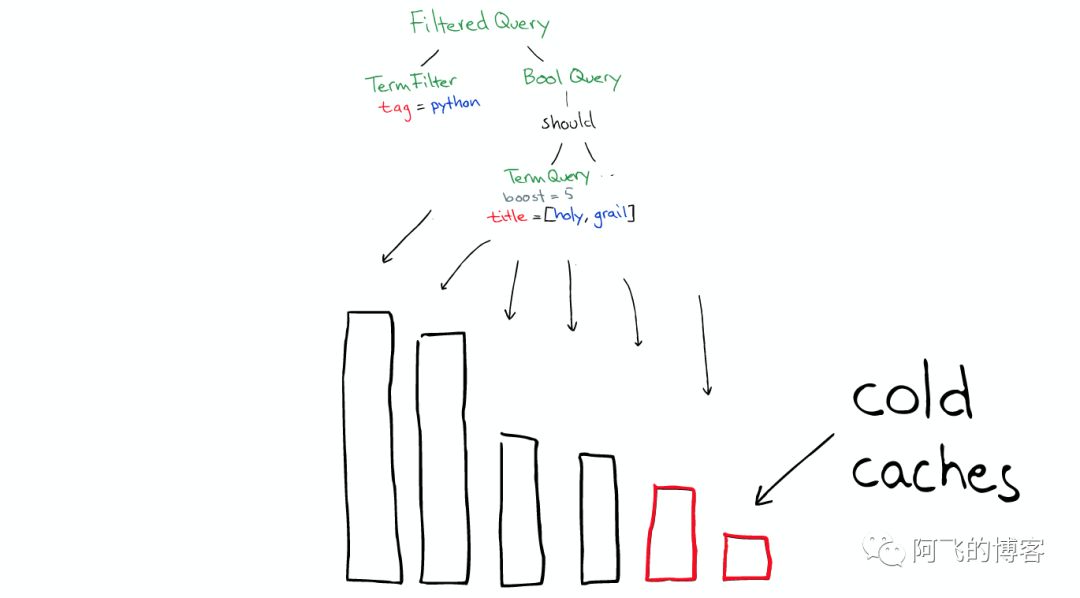 Filtered Query
TermFilter
tag = python
Bool Query
should
TermQuery ...
boost = 5
title = [holy, grail]
cold
caches
阿飞的博客